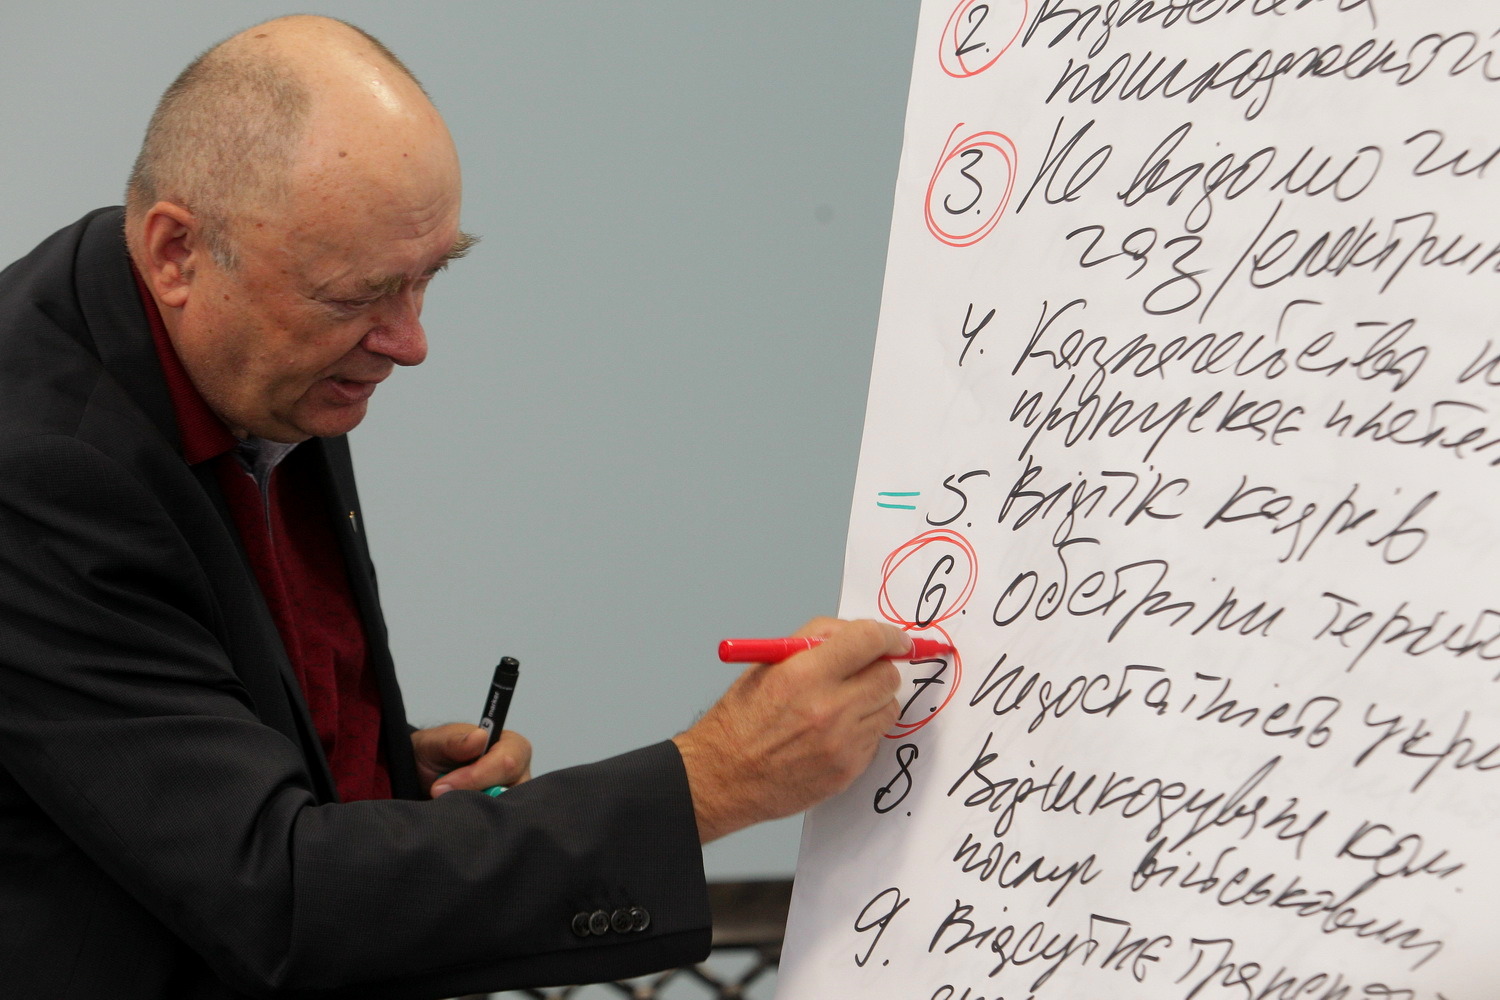 2. Відновлення
пошкодженої
3. Не відомо чи
газ/електрик
4. Казначейство н
пропускає платеж
= 5. Відтік кадрів
6. Обстріли терито
7. Недостатність укри
8. Відшкодуване ком.
послуг військовим
9. Відсутнє
marker